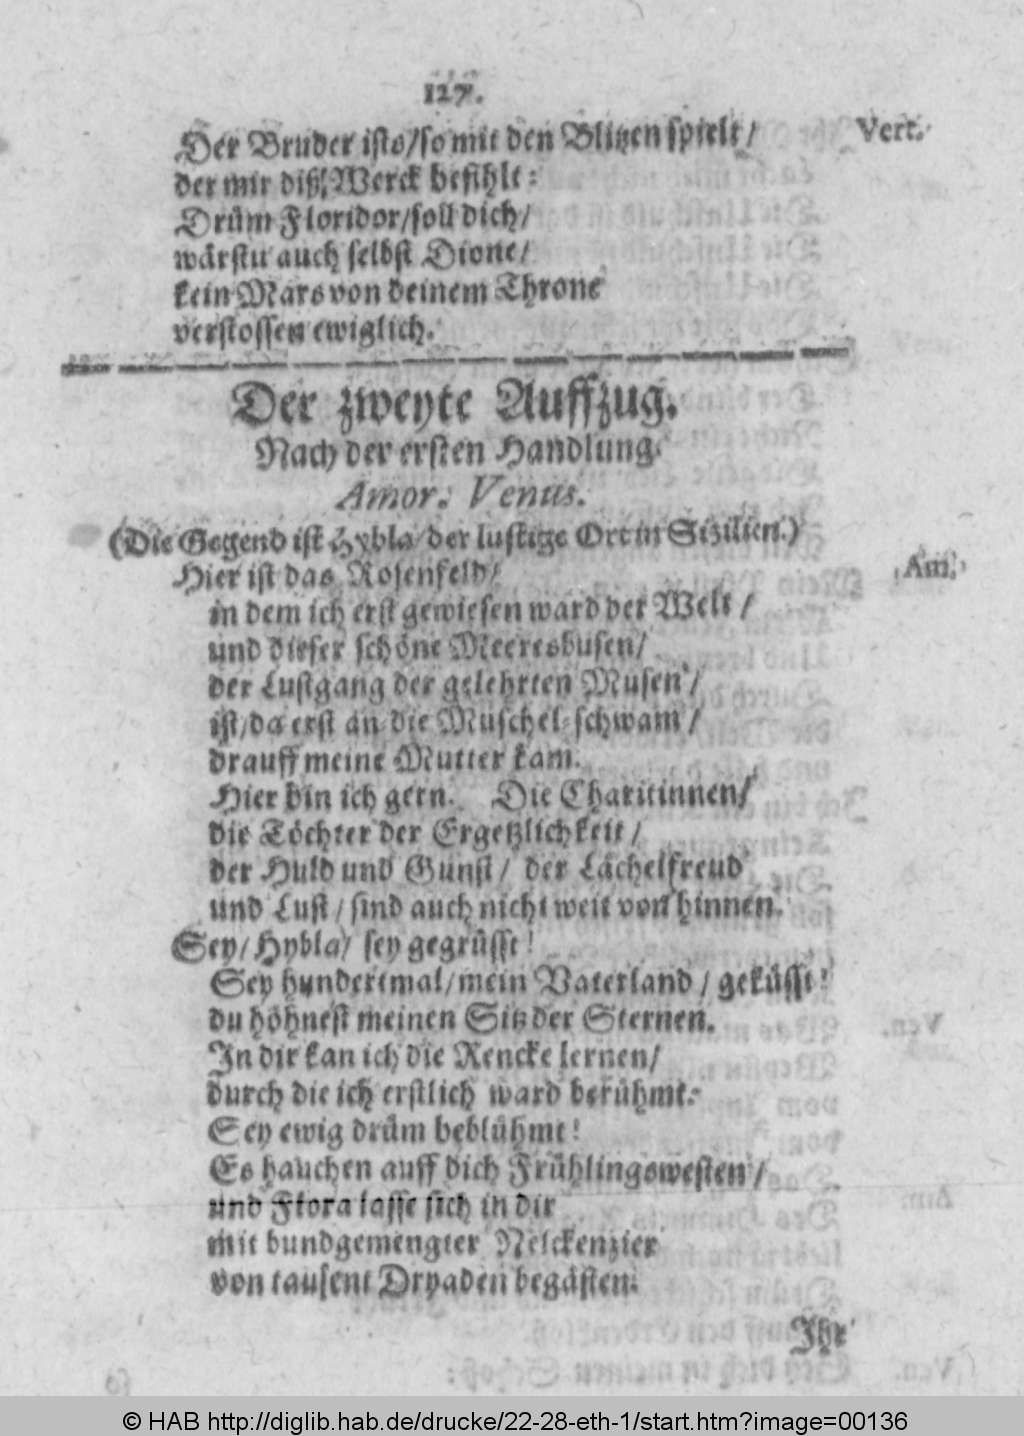 127.
Der Bruder ists/so mit den Blitzen spielt/ Vert.
der mir diß Werck befihlt:
Drüm Floridor/soll dich/
wärstu auch selbst Dione/
kein Mars von deinem Throne
verstossen ewiglich.
Der zweyte Auffzug.
Nach der ersten Handlung.
Amor. Venus.
(Die Gegend ist Hybla/der lustige Ort in Sizilien.)
Hier ist das Rosenfeld/ Am.
in dem ich erst gewiesen ward der Welt/
und dieser schöne Meeresbusen/
der Lustgang der gelehrten Musen/
ist/da erst an die Muschel-schwam/
drauff meine Mutter kam.
Hier bin ich gern. Die Charitinnen/
die Töchter der Ergetzlichkeit/
der Huld und Gunst/ der Lächelfreud
und Lust/sind auch nicht weit von hinnen.
Sey/Hybla/ sey gegrüsst!
Sey hundertmal/mein Vaterland/geküsst!
du höhnest meinen Sitz der Sternen.
In dir kan ich die Rencke lernen/
durch die ich erstlich ward berühmt.
Sey ewig drüm beblühmt!
Es hauchen auff dich Frühlingswesten/
und Flora lasse sich in dir
mit bundgemengter Nelckenzier
von tausent Dryaden begästen.
Ihr
© HAB http://diglib.hab.de/drucke/22-28-eth-1/start.htm?image=00136